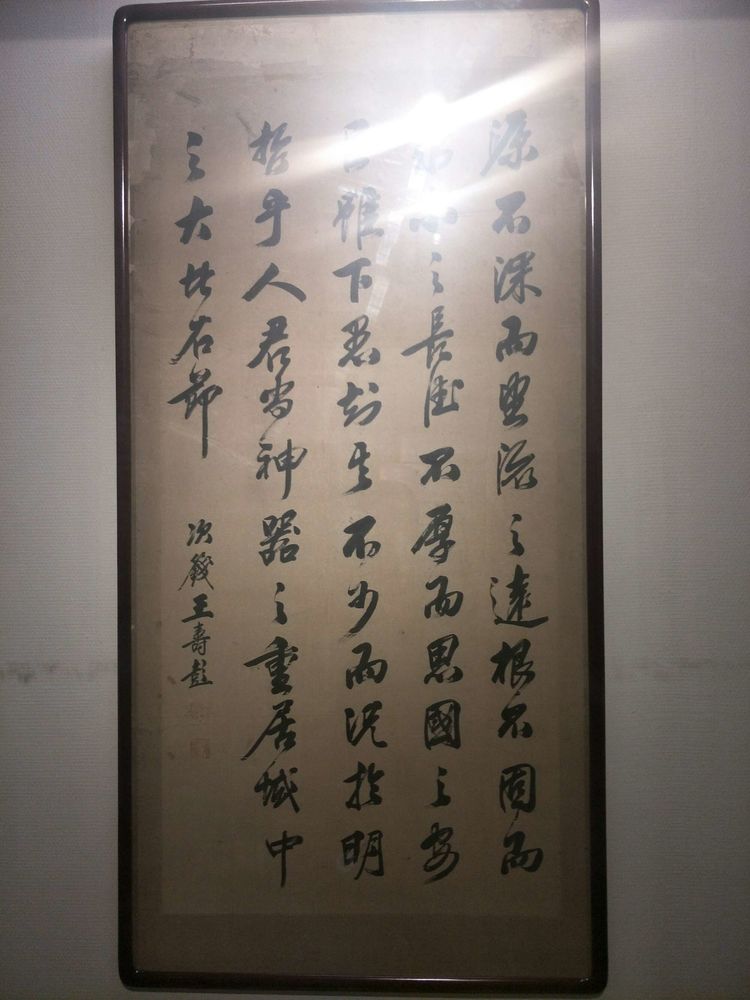 源不深而望流之遠根不固而
求木之長德不厚而思國之安
臣雖下愚知其不可而況於明
哲乎人君當神器之重居域中
之大
次籛王壽彭